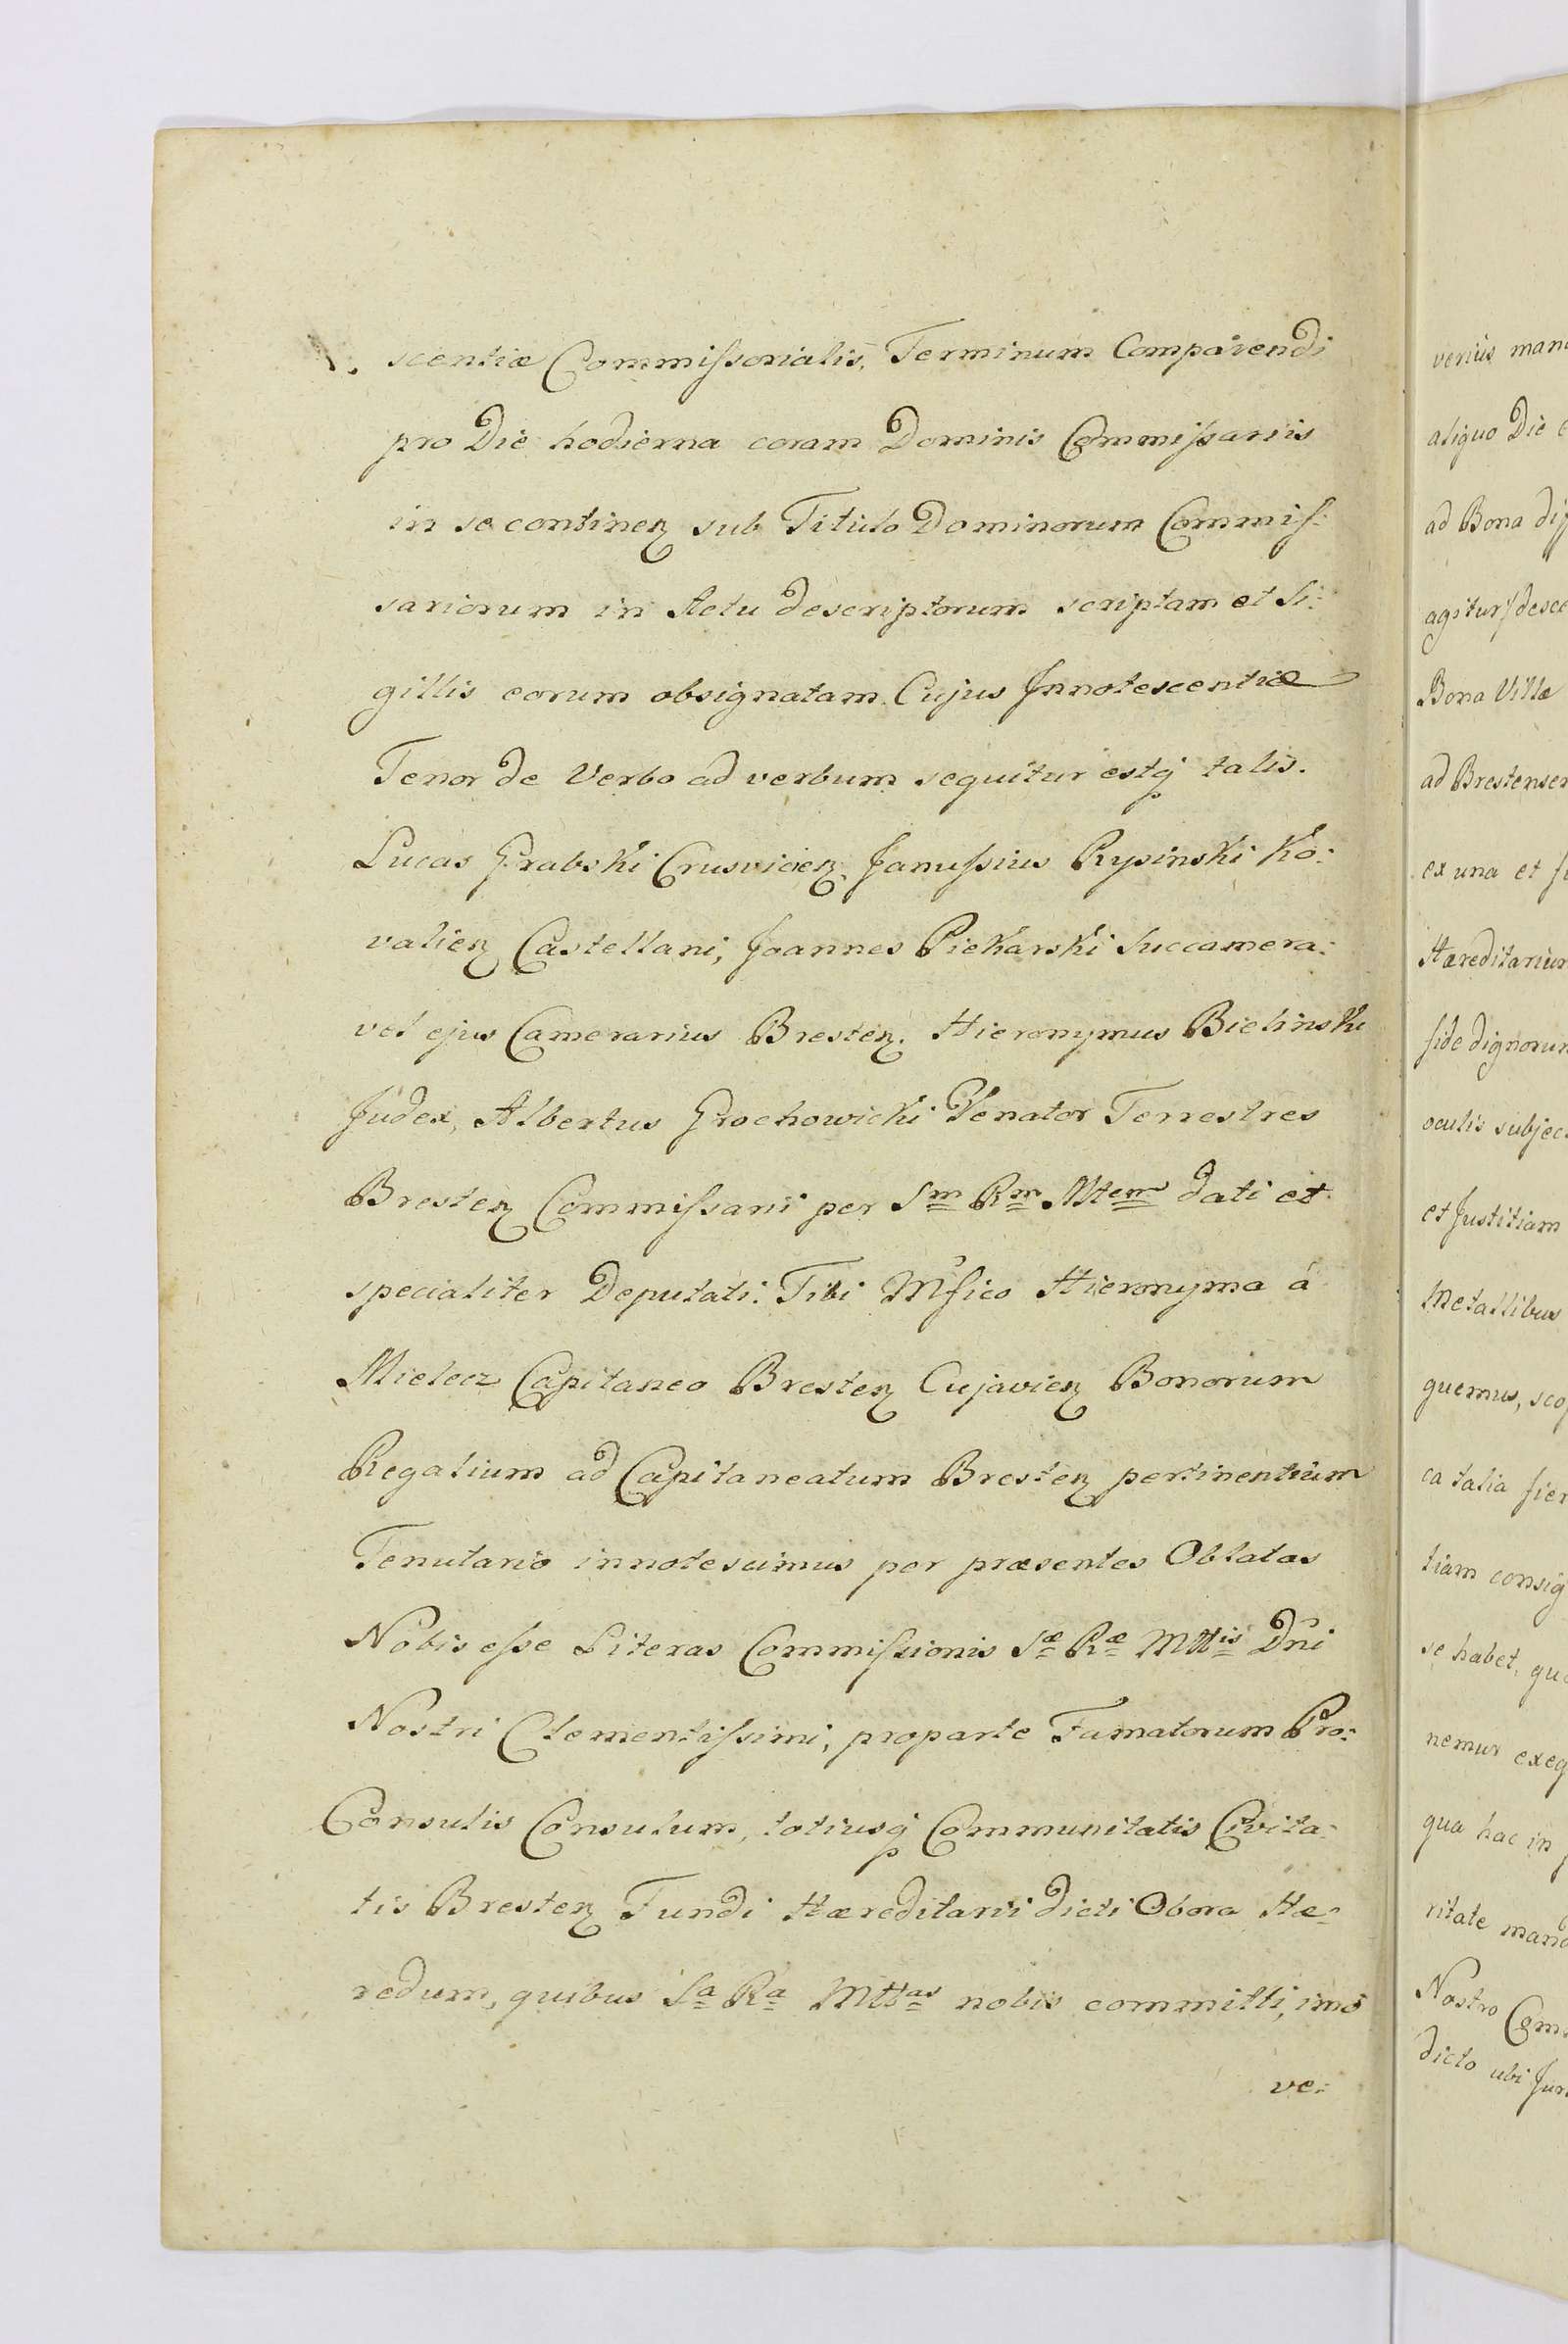 scentiæ Commiſsorialis, Terminum Comparendi
pro Die hodierna coram Dominis Commiſsariis
in se continen̨ sub Titulo Dominorum Commiſ:
sariorum in Actu descriptorum scriptam et Si:
gillis eorum obsignatam. Cujus Innotescentiæ
Tenor de Verbo ad verbum sequitur estq́ talis.
Lucas Grabski Crusvicien̨. Januſsius Rysinski Ko:
valien̨ Castellani, Joannes Piekarski Succamera:
vel ejus Camerarius Bresten̨. Hieronymus Bielinski
Judex, Albertus Grochowicki Venator Terrestres
Bresten̨ Commiſsarii per Sm Rm Mttem dati et
specialiter Deputati. Tibi Mfico Hieronyma á
Mielecz Capitaneo Bresten̨ Cujavien̨ Bonorum
Regalium ad Capitaneatum Bresten̨ pertinentium
Tenutario innotescimus per præsentes Oblatas
Nobis eſse Literas Commiſsionis Sæ Ræ Mttis Dńi
Nostri Clementiſsimi, proparte Famatorum Pro:
Consulis Consulum, totiusq́ Communitatis Civita:
tis Bresten̨ Fundi Hæreditarii dicti Obora Hæ:
redum, quibus Sa Ra Mttas nobis committi, imó
ve:
verius
aliquo Die
ad Bona
agitur/
Bona Villæ
ad
ex una et
fide
oculis
et Justitiam
Metallibus
quemus,
ea talia
tiam
se habet,
nemur
qua hac in
ritate
Nostro
dicto ubi